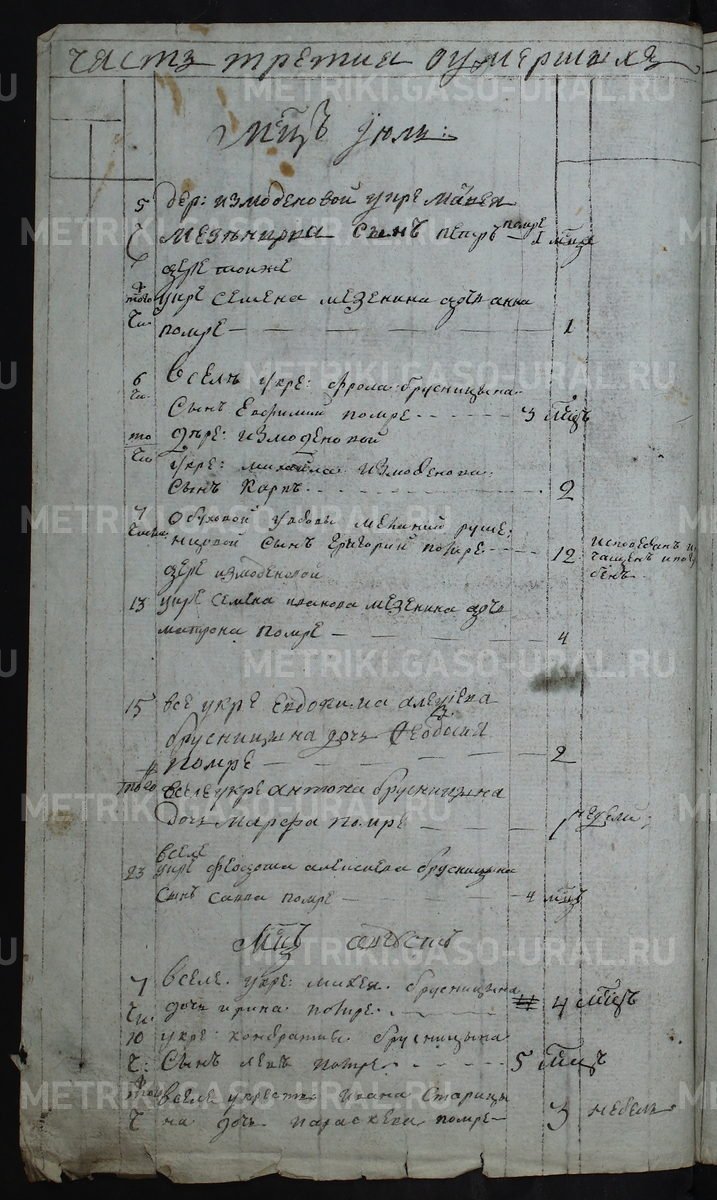 часть третия оумершыхъ
мцъ Июль:
5 дер: измоденовой у кре Макея
Мезенина сынъ петръ помре 1 мцъ
дере тоиже
того у кре Семена мезенина дочь анна
чи: помре — 1
6 в селѣ у кре: фрола брусницына
чи. Сынъ Евфимий помре 3 мцъ
то дере: измоденовой
чи у кре: михаила измоденова
Сынъ Карпъ 2
7 обуховой у вдовы меланий
числа сынъ григорий помре 12 исповеданъ и
чащенъ и погре
бенъ
дере измоденовой
13 у кре Семена иванова мезенина дочь
матрона помре — 4
15 в се у кре Евдокима алеѯѣева
брусницына дочь Ѳеодосия
помре — 2
того в селе у кре антона брусницына
дочь марфа помре недели
в селе
23 у кре феодота алексиева брусницына
сынъ савва помре — 4 мцъ
Мцъ августъ
7 в селе у кре: михея брусницына
чи. дочь ирина помре 4 мцъ
10 у кре: кондратия брусницына
ч: Сынъ левъ помре 5 мцъ
того в селе у крестья Ивана Старицы
ч на дочь параскева помре 3 недель